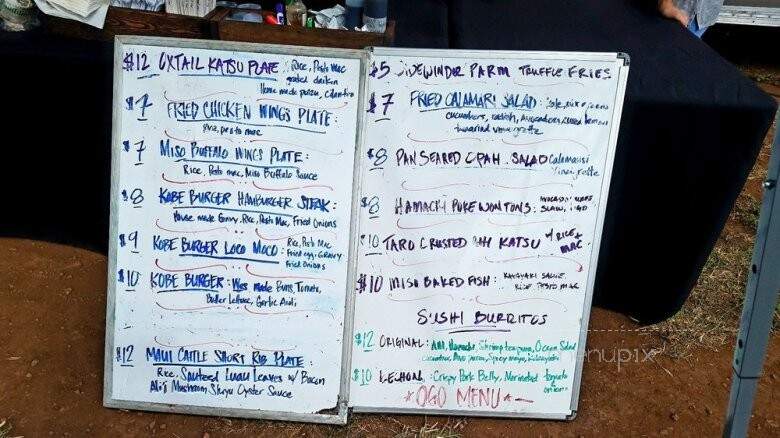 $12 OXTAIL KATSU PLATE: Rice, Pesto Mac
grated daikon
Home made ponzu, cilantro
$7 FRIED CHICKEN WINGS PLATE:
Rice, pesto mac
$7 MISO BUFFALO WINGS PLATE:
Rice, Pesto mac, Miso Buffalo Sauce
$8 KOBE BURGER HAMBURGER STEAK:
House made Gravy, Rice, Pesto Mac, Fried Onions
$9 KOBE BURGER LOCO MOCO: Rice, Pesto Mac
Fried egg, GRAVY
Fried Onions
$10 KOBE BURGER: made Buns, Tomato,
Butter Lettuce, Garlic Aioli
$12 MAUI CATTLE SHORT RIB PLATE:
Rice, Sauteed Luau Leaves w/ Bacon
Alii Mushroom, Oyster Sauce
$5 SIDEWINDER PARM TRUFFLE FRIES
$7 FRIED CALAMARI SALAD:
cucumbers, radish, Avocado, lemon
vinaigrette
$8 PAN SEARED OPAH SALAD Calamansi
Vinaigrette
$8 HAMACHI POKE WONTONS: AVOCADO
SLAW
$10 TARO CRUSTED AHI KATSU W/ RICE +
MAC
$10 MISO BAKED FISH:
RICE PESTO MAC
SUSHI BURRITOS
$12 ORIGINAL: Ahi, Hamachi, Shrimp tempura, Ocean Salad
cucumber, Avo, Spicy mayo
$10 LECHON: Crispy Pork Belly, Marinated tomato
onion
*OGO MENU*
menupix